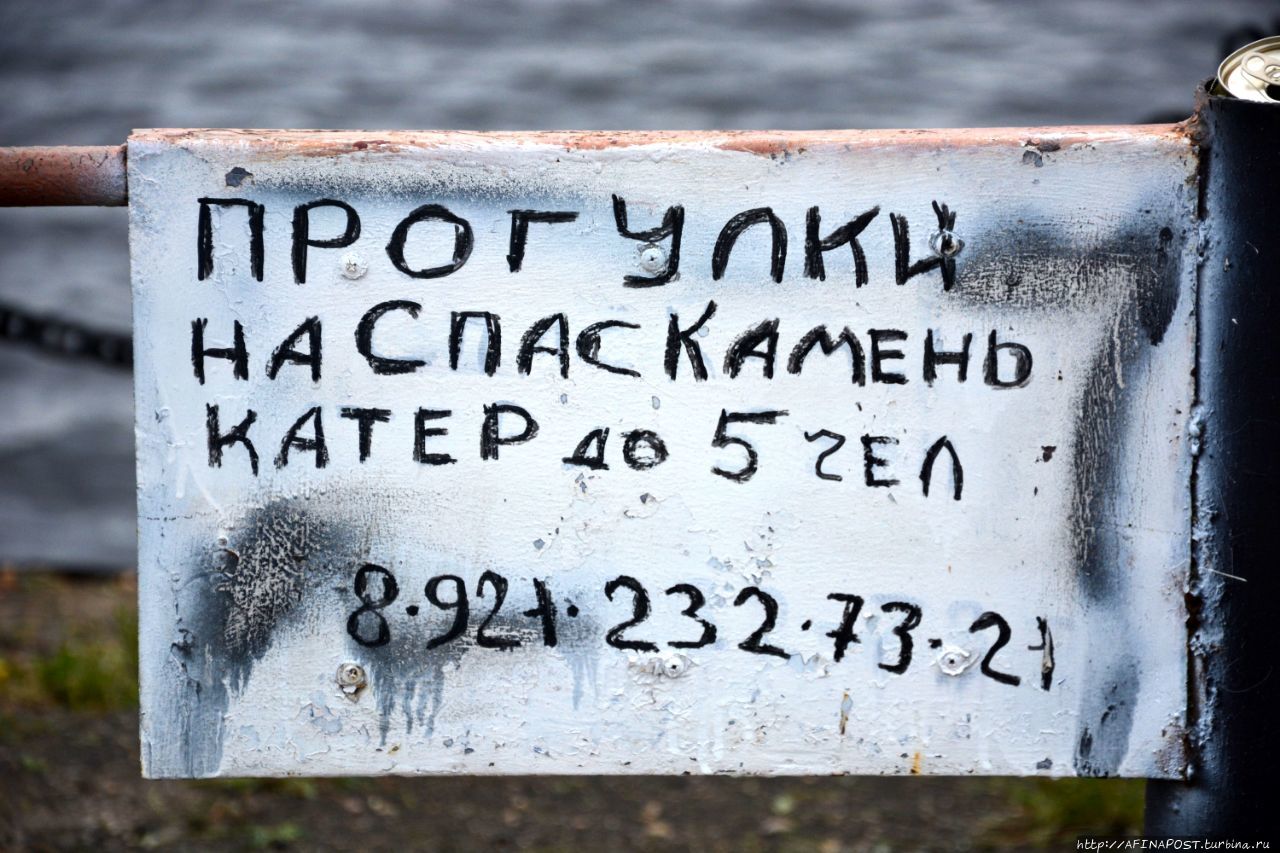 ПРОГУЛКИ
НА СПАС КАМЕНЬ
КАТЕР ДО 5 ЧЕЛ
8·921·232·73·21
http://AFINAPOST.turbina.ru